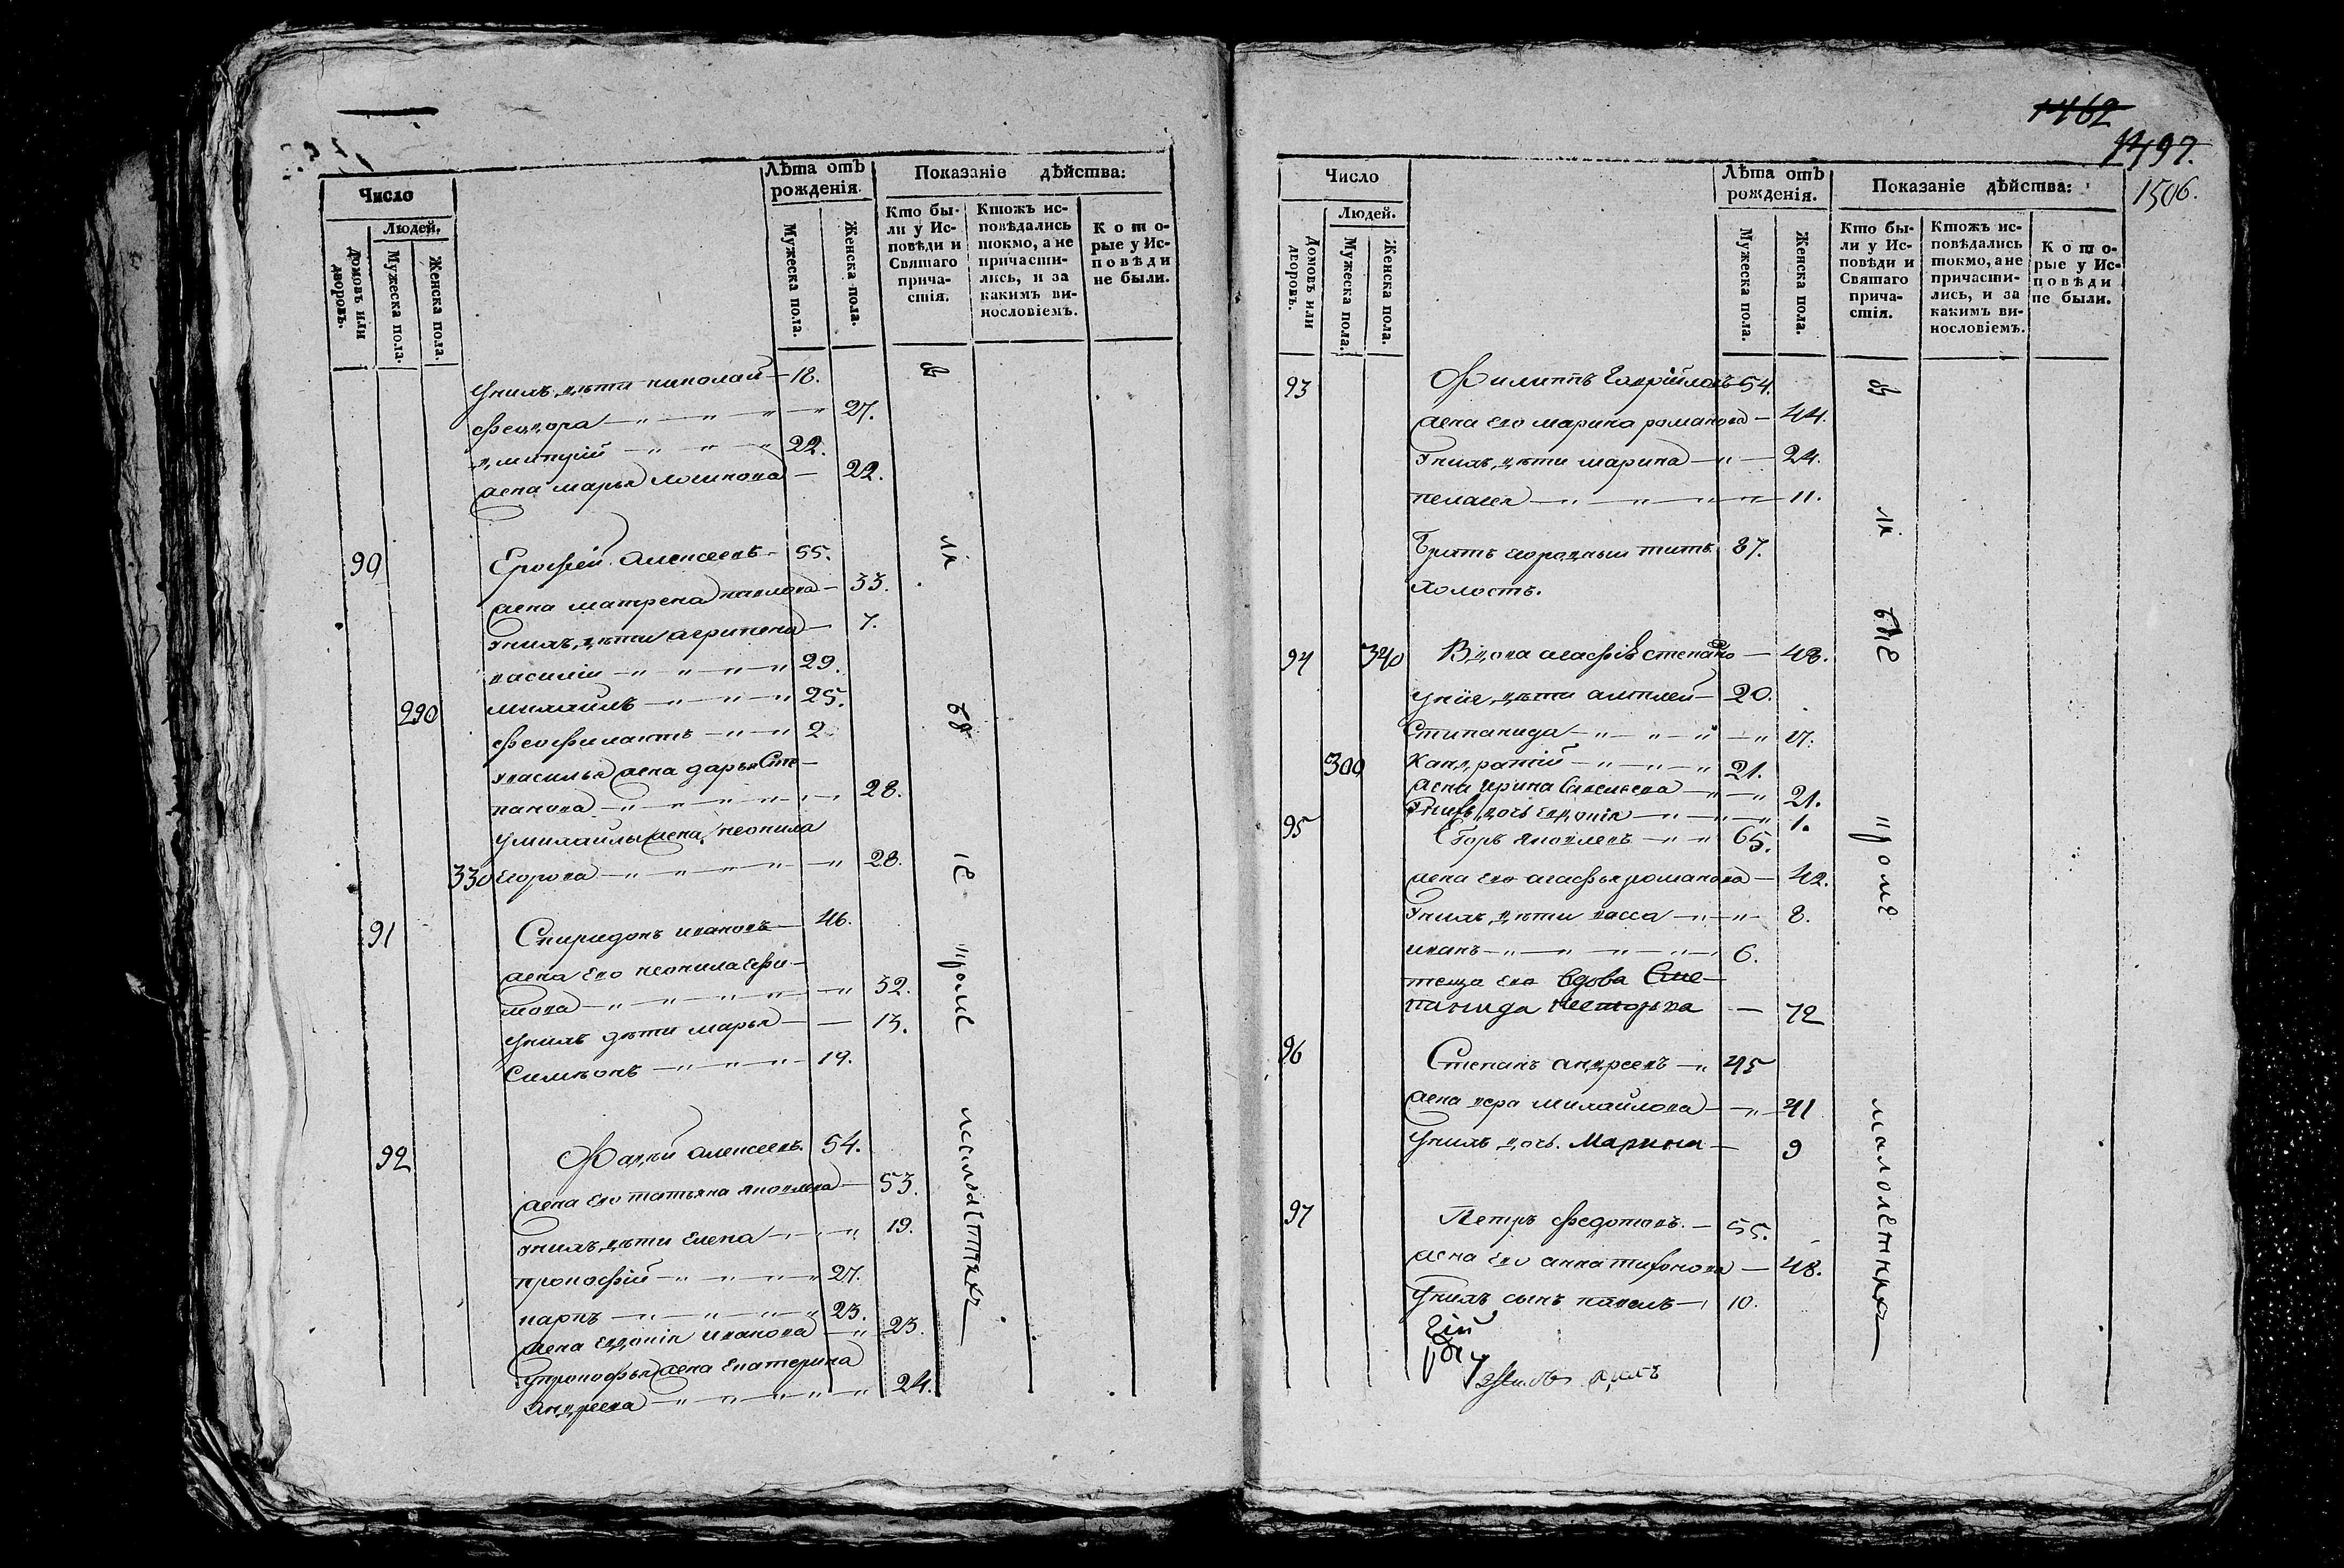 Число
Людей.
Домовъ или дворовъ.
Мужеска пола.
Женска пола.
Лѣта отъ рожденія.
Мужеска пола.
Женска пола.
Показаніе дѣйства:
Кто были у Исповѣди и Святаго причастія.
Ктожъ исповѣдались токмо, а не причастились, и за какимъ винословіемъ.
Которые у Исповѣди не были.
у нихъ дѣти николай — 18.
феодора — 27.
димитрій — 22.
жена марья — 22.
90 Ерофѣй Алексеевъ — 55.
жена матрена павлова — 33.
у нихъ дѣти агрипена — 7.
василіи — 29.
290 михаилъ — 25.
феофилактъ — 2
у василья жена дарья Сте-
панова — 28.
у михаилы жена неонила
330 егорова — 28.
91 Спиридонъ ивановъ — 46.
жена его неонила ефи-
мова — 52.
у нихъ дѣти марья — 13.
Симеонъ — 19.
92 Фадѣй алексеевъ. 54.
жена его татьяна яковлева — 53.
у нихъ дѣти Елена — 19.
прокофій — 27.
карпъ — 23.
жена Евдокія иванова — 23.
у прокофья жена екатерина
Андреева — 24.
1462
1497.
1506.
Число
Людей.
Домовъ или дворовъ.
Мужеска пола.
Женска пола.
Лѣта отъ рожденія.
Мужеска пола.
Женска пола.
Показаніе дѣйства:
Кто были у Исповѣди и Святаго причастія.
Ктожъ исповѣдались токмо, а не причастились, и за какимъ винословіемъ.
Которые у Исповѣди не были.
93 Филиппъ Гавріиловъ 54.
жена его марина романова — 44.
у нихъ дѣти марина — 24.
пелагея — 11.
братъ титъ 37.
холостъ.
94 340 Вдова агафія степанова — 48.
у нее дѣти — 20.
Стипанида — 17.
300 Кандратій — 21.
жена ирина — 21.
у нихъ дочь евдокія — 1.
95 Егоръ яковлевъ — 65.
жена его агафья романова — 42.
у нихъ дѣти васса — 8.
иванъ — 6.
теща его вдова Сте-
панида — 72
96 Степанъ андреевъ — 45
жена вера михайлова — 41
у нихъ дочь Марина — 9
97 Петръ федотовъ. — 55.
жена его анна тихонова — 48.
у нихъ сынъ павелъ — 10.
были
кроме
малолѣтныхъ